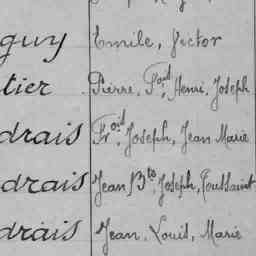 guy Emile, Victor
tier Pierre, Paul, Henri, Joseph
drais Frois, Joseph, Jean Marie
drais Jean Bte, Joseph, Toussaint
drais Jean, Louis, Marie